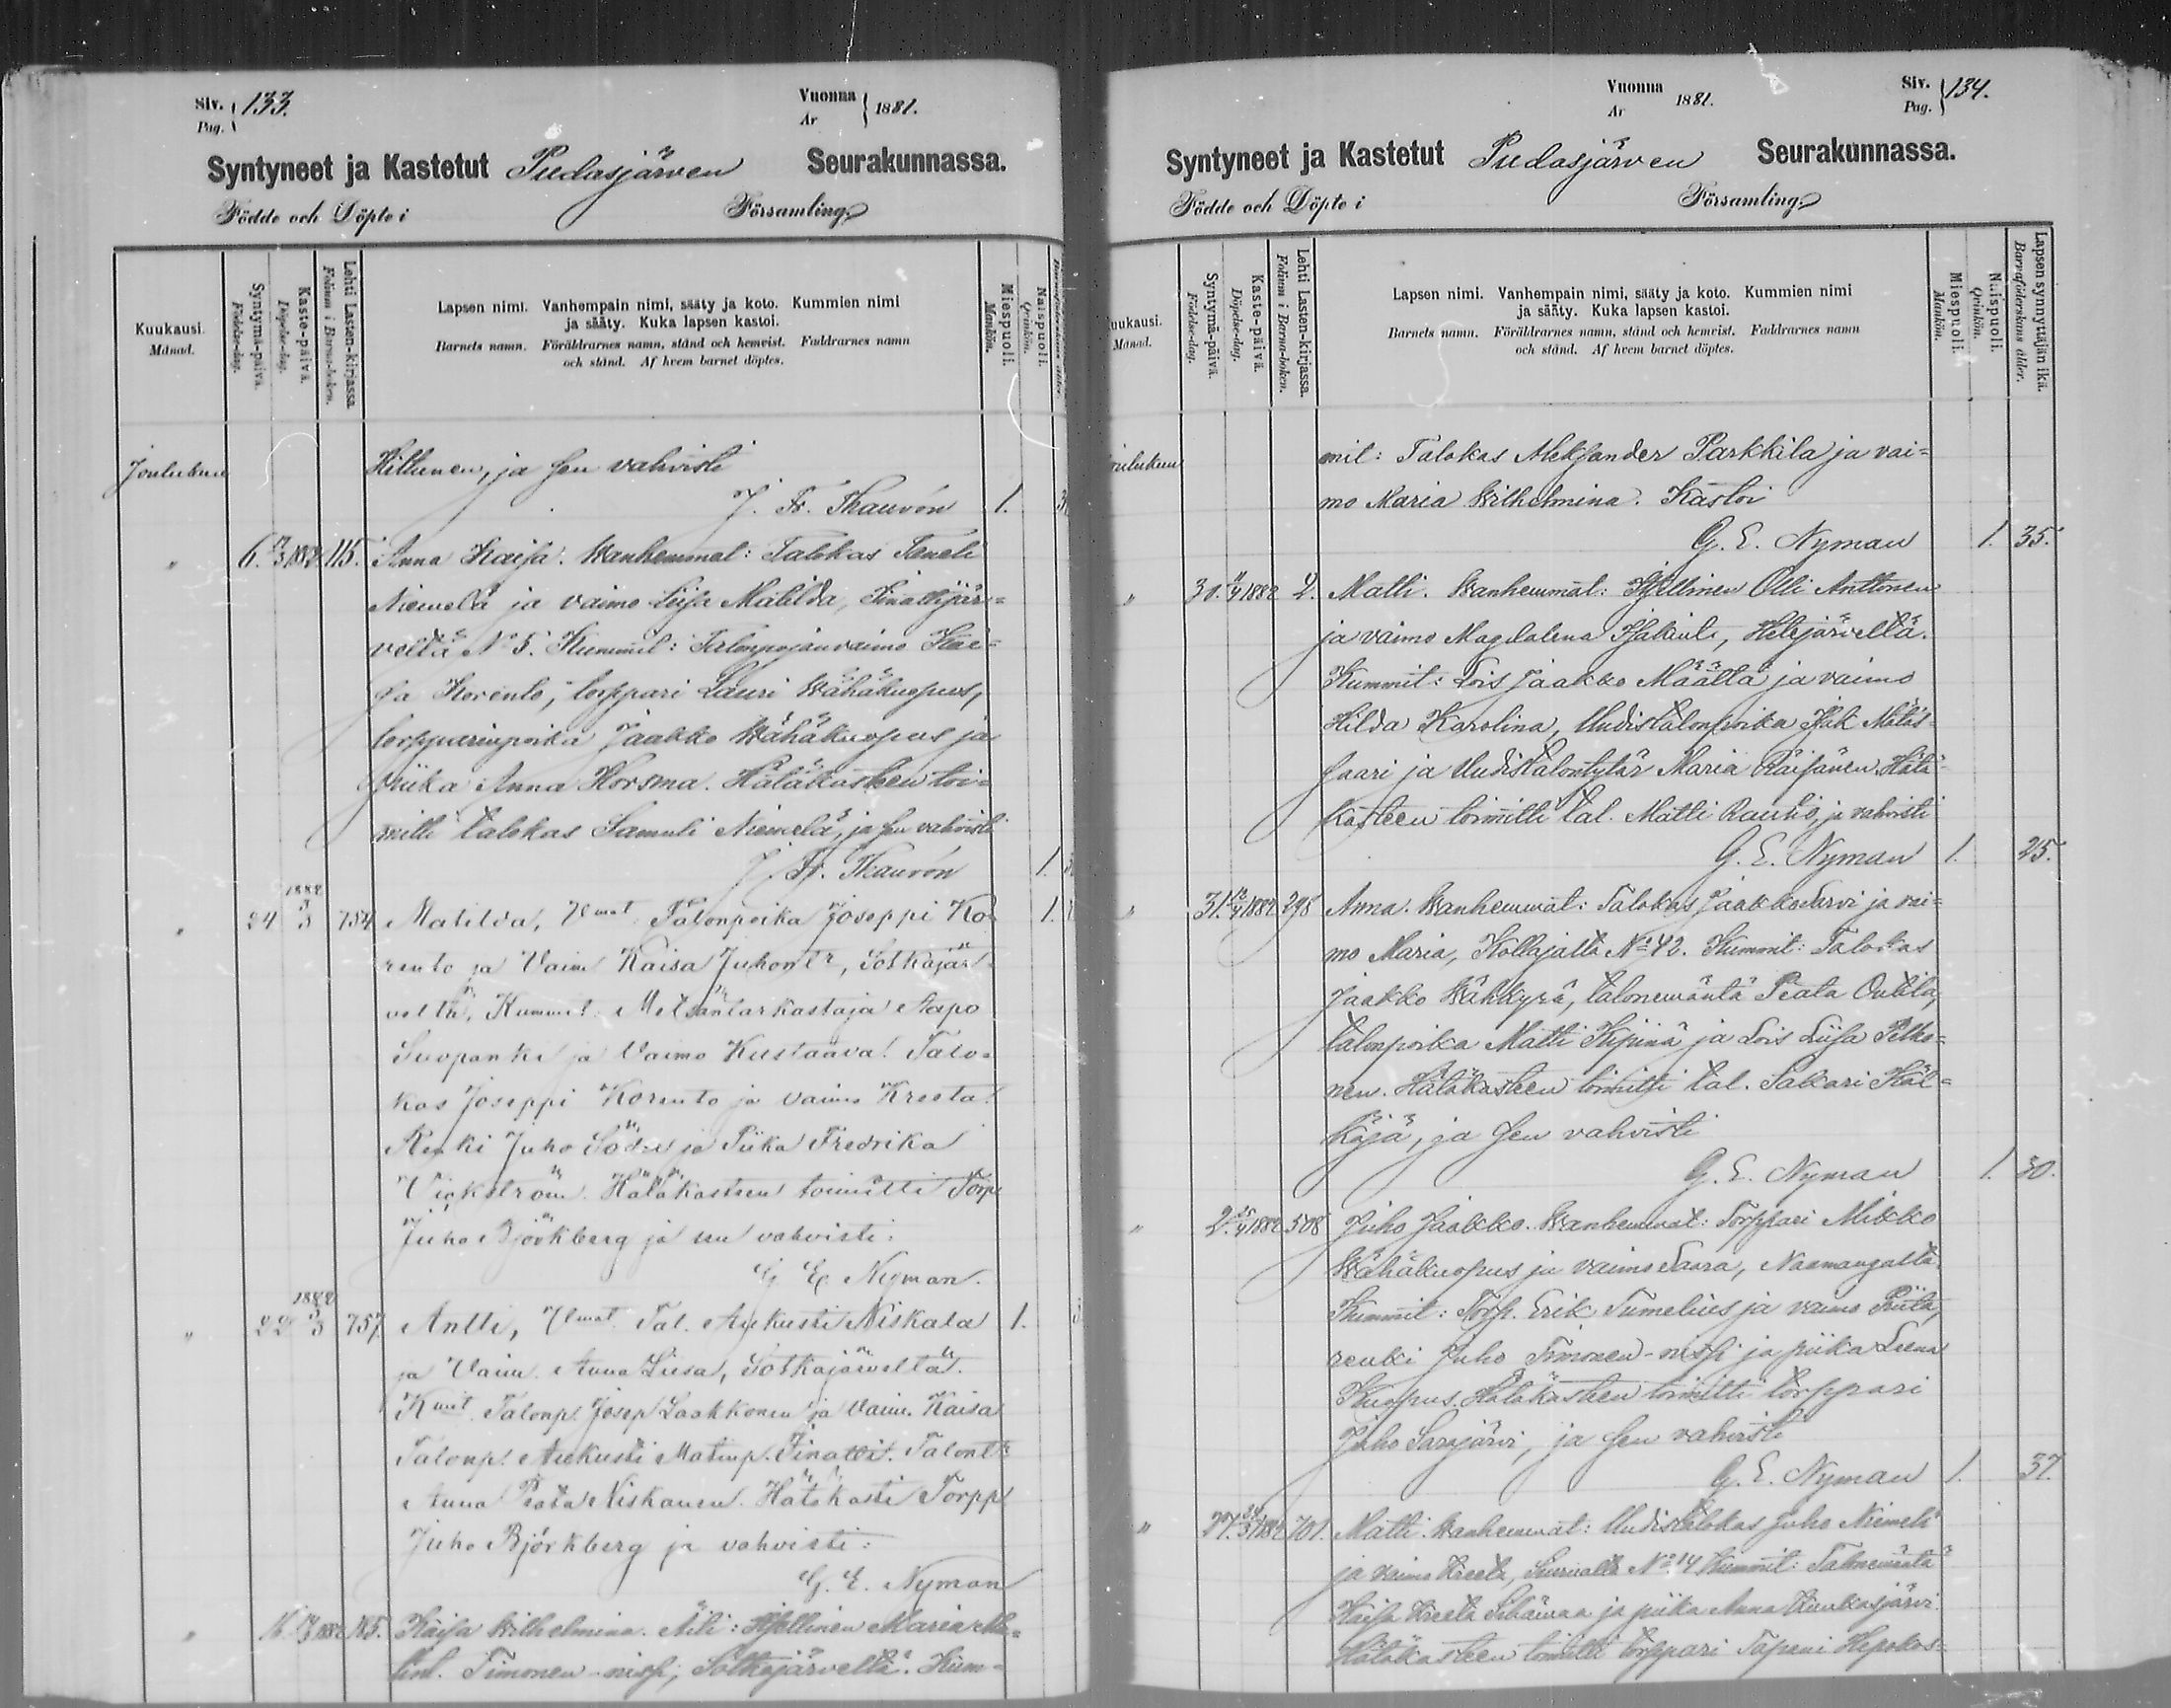 Siv. 133.
Pag.
Vuonna 1881.
År
Syntyneet ja Kastetut Pudasjärven Seurakunnassa.
Födde och Döpte i Församling
Kuukausi.
Månad.
Syntymä-päivä.
Födelse-dag.
Kaste-päivä.
Döpelse-dag.
Lehti Lasten-kirjassa.
Folium i Barna-boken.
Lapsen nimi. Vanhempain nimi, sääty ja koto. Kummien nimi
ja sääty. Kuka lapsen kastoi.
Barnets namn. Föräldrarnes namn, stånd och hemvist. Faddrarnes namn
och stånd. Af hvem barnet döptes.
Miespuoli.
Mankön.
Naispuoli.
Qvinkön.
Joulukuu Hiltunen, ja sen vahvisti
J. Fr. Thauvón 1.
" 6. 1882 115. Anna Kaisa. Wanhemmat: Talokas Taneli
Niemelä ja vaimo Liisa Matilda,
veltä No 5. Kummit: Talonpojanvaimo Kai=
sa Korento, torppari Lauri Wähäkuopus,
torpparinpoika Jaakko Wähäkuopus ja
piika Anna Horsma. Hätäkasteen toi=
mitti talokas Samuli Niemelä, ja sen vahvisti
J. Fr. Thauvón 1.
" 24 1882 3/3 754 Matilda, Vmat Talonpoika Joseppi Ko= 1.
rento ja Vaim Kaisa Juhontr, Sotkajär
veltä, Kummit Metsäntarkastaja Aapo
Suopanki ja Vaimo Kustaava. Talo=
kas Joseppi Korento ja vaimo Kreeta.
Renki Juho ja Piika Fredrika
Vickström. Hätäkasteen toimitti Torp
Juho Björkberg ja sen vahvisti:
G. E. Nyman.
" 22 1882 757 Antti, Vmat Tal. Aukusti Niskala 1.
ja Vaim. Anna Liisa, Sotkajärveltä.
Kmit Talonp. Josep Laakkonen ja Vaim. Kaisa
Talonp. Aukusti Matinp. Talontr
Anna Niskanen. Hätäkasti Torpp
Juho Björkberg ja vahvisti:
G. E. Nyman
" 16. 1882 185. Kaisa Wilhelmina. Äiti: Itsellinen Maria
Timonen-niss; Sotkajärveltä. Kum=
Vuonna 1881.
År
Siv. 134.
Pag.
Syntyneet ja Kastetut Pudasjärven Seurakunnassa.
Födde och Döpte i Församling
Kuukausi.
Månad.
Syntymä-päivä.
Födelse-dag.
Kaste-päivä.
Döpelse-dag.
Lehti Lasten-kirjassa.
Folium i Barna-boken.
Lapsen nimi. Vanhempain nimi, sääty ja koto. Kummien nimi
ja sääty. Kuka lapsen kastoi.
Barnets namn. Föräldrarnes namn, stånd och hemvist. Faddrarnes namn
och stånd. Af hvem barnet döptes.
Miespuoli.
Mankön.
Naispuoli.
Qvinkön.
Lapsen synnyttäjän ikä.
Barnaföderskans ålder.
Joulukuu mit: Talokas Aleksander Parkkila ja vai=
mo Maria Wilhelmina. Kastoi
G. E. Nyman 1. 35.
" 30. 1882 2. Matti. Wanhemmat: Itsellinen Olli Anttonen
ja vaimo Magdalena, Hetejärveltä.
Kummit: Lois Jaakko Määttä ja vaimo
Hilda Karolina, Uudistalonpoika Isak Mätäs=
saari ja Uudistalontytär Maria Räisänen. Hätä=
kasteen toimitti tal. Matti Rauhio, ja vahvisti
G. E. Nyman 1. 25.
" 31. 1882 298 Anna. Wanhemmat: Talokas Jaakko Sarvi ja vai=
mo Maria, Kollajalta No 42. Kummit: Talokas
Jaakko Wähkyrä, talonemäntä Peata Outila,
talonpoika Matti Kipinä ja Lois Liisa Pelko=
nen. Hätäkasteen toimitti tal. Sakari Käl=
käjä, ja sen vahvisti
G. E. Nyman 1. 30.
" 2. 1882 508 Juho Jaakko. Wanhemmat: Torppari Mikko
Wähäkuopus ja vaimo Saara, Naamangalta.
Kummit: Torp. Erik Tumelius ja vaimo
renki Juho Timonen-niss ja piika Leena
Kuopus. Hätäkasteen toimitti torppari
Juho Sarajärvi, ja sen vahvisti
G. E. Nyman 1. 37.
" 27. 1882 701. Matti. Wanhemmat: Uudistalokas Juho Niemelä
ja vaimo Kreeta, No 14 Kummit: Talonemäntä
Kaisa Kreeta ja piika Anna
Hätäkasteen toimitti torppari Tapani Hepokos=